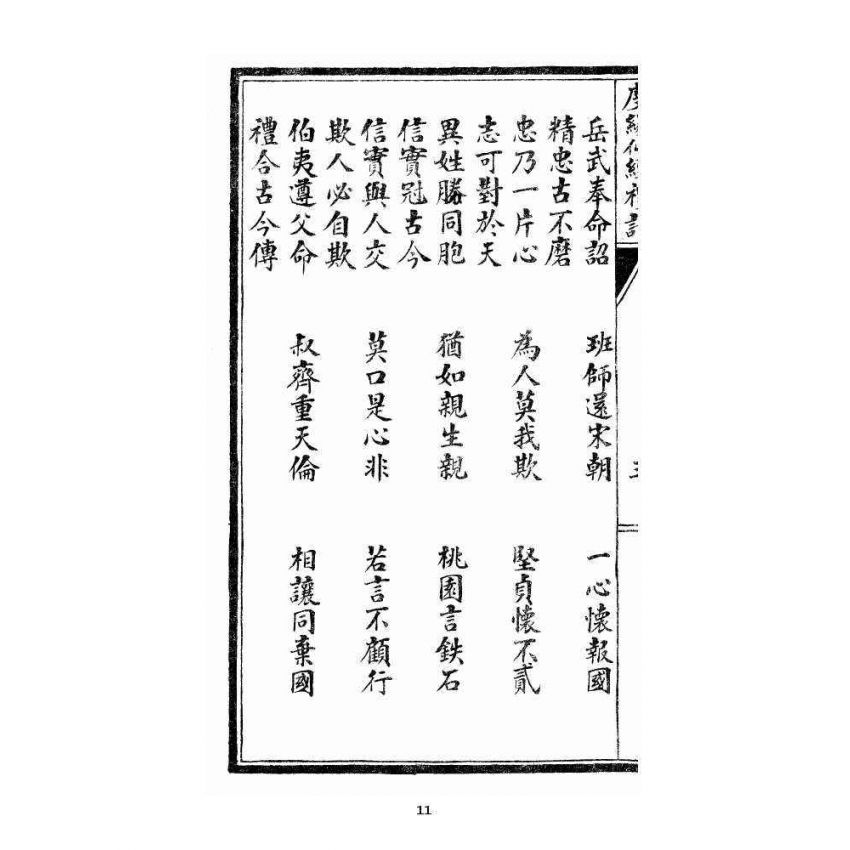 岳武奉命詔 班師還宋朝 一心懷報國
精忠古不磨
忠乃一片心 為人莫我欺 堅貞懷不貳
志可對於天
異姓勝同胞 猶如親生親 桃園言鉄石
信實冠古今
信實與人交 莫口是心非 若言不顧行
欺人必自欺
伯夷遵父命 叔齊重天倫 相讓同棄國
禮合古今傳
11